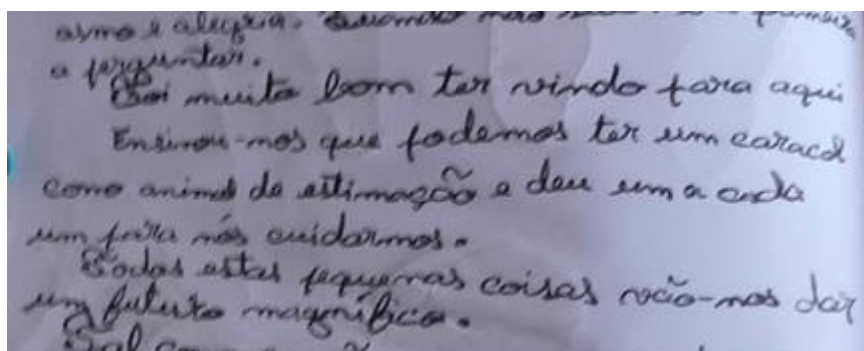 asmo e alegria. Quando não
a perguntar.
Foi muito bom ter vindo para aqui
Ensinou-nos que podemos ter um caracol
como animal de estimação e deu um a cada
um para nós cuidarmos.
Todas estas pequenas coisas vão-nos dar
um futuro magnífico.
Tal